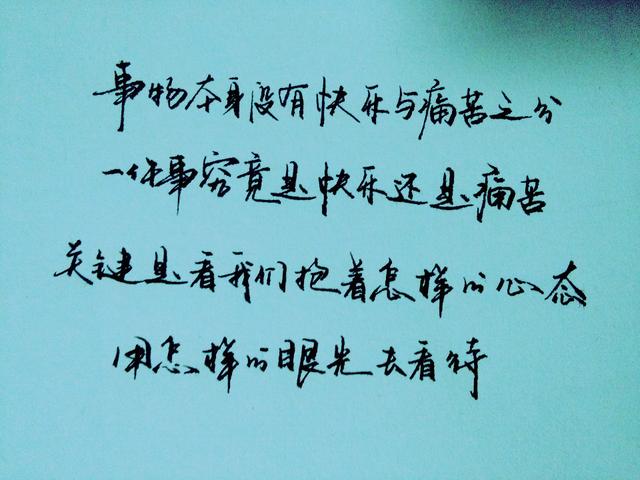 事物本身没有快乐与痛苦之分
一件事究竟是快乐还是痛苦
关键是看我们抱着怎样的心态
用怎样的眼光去看待